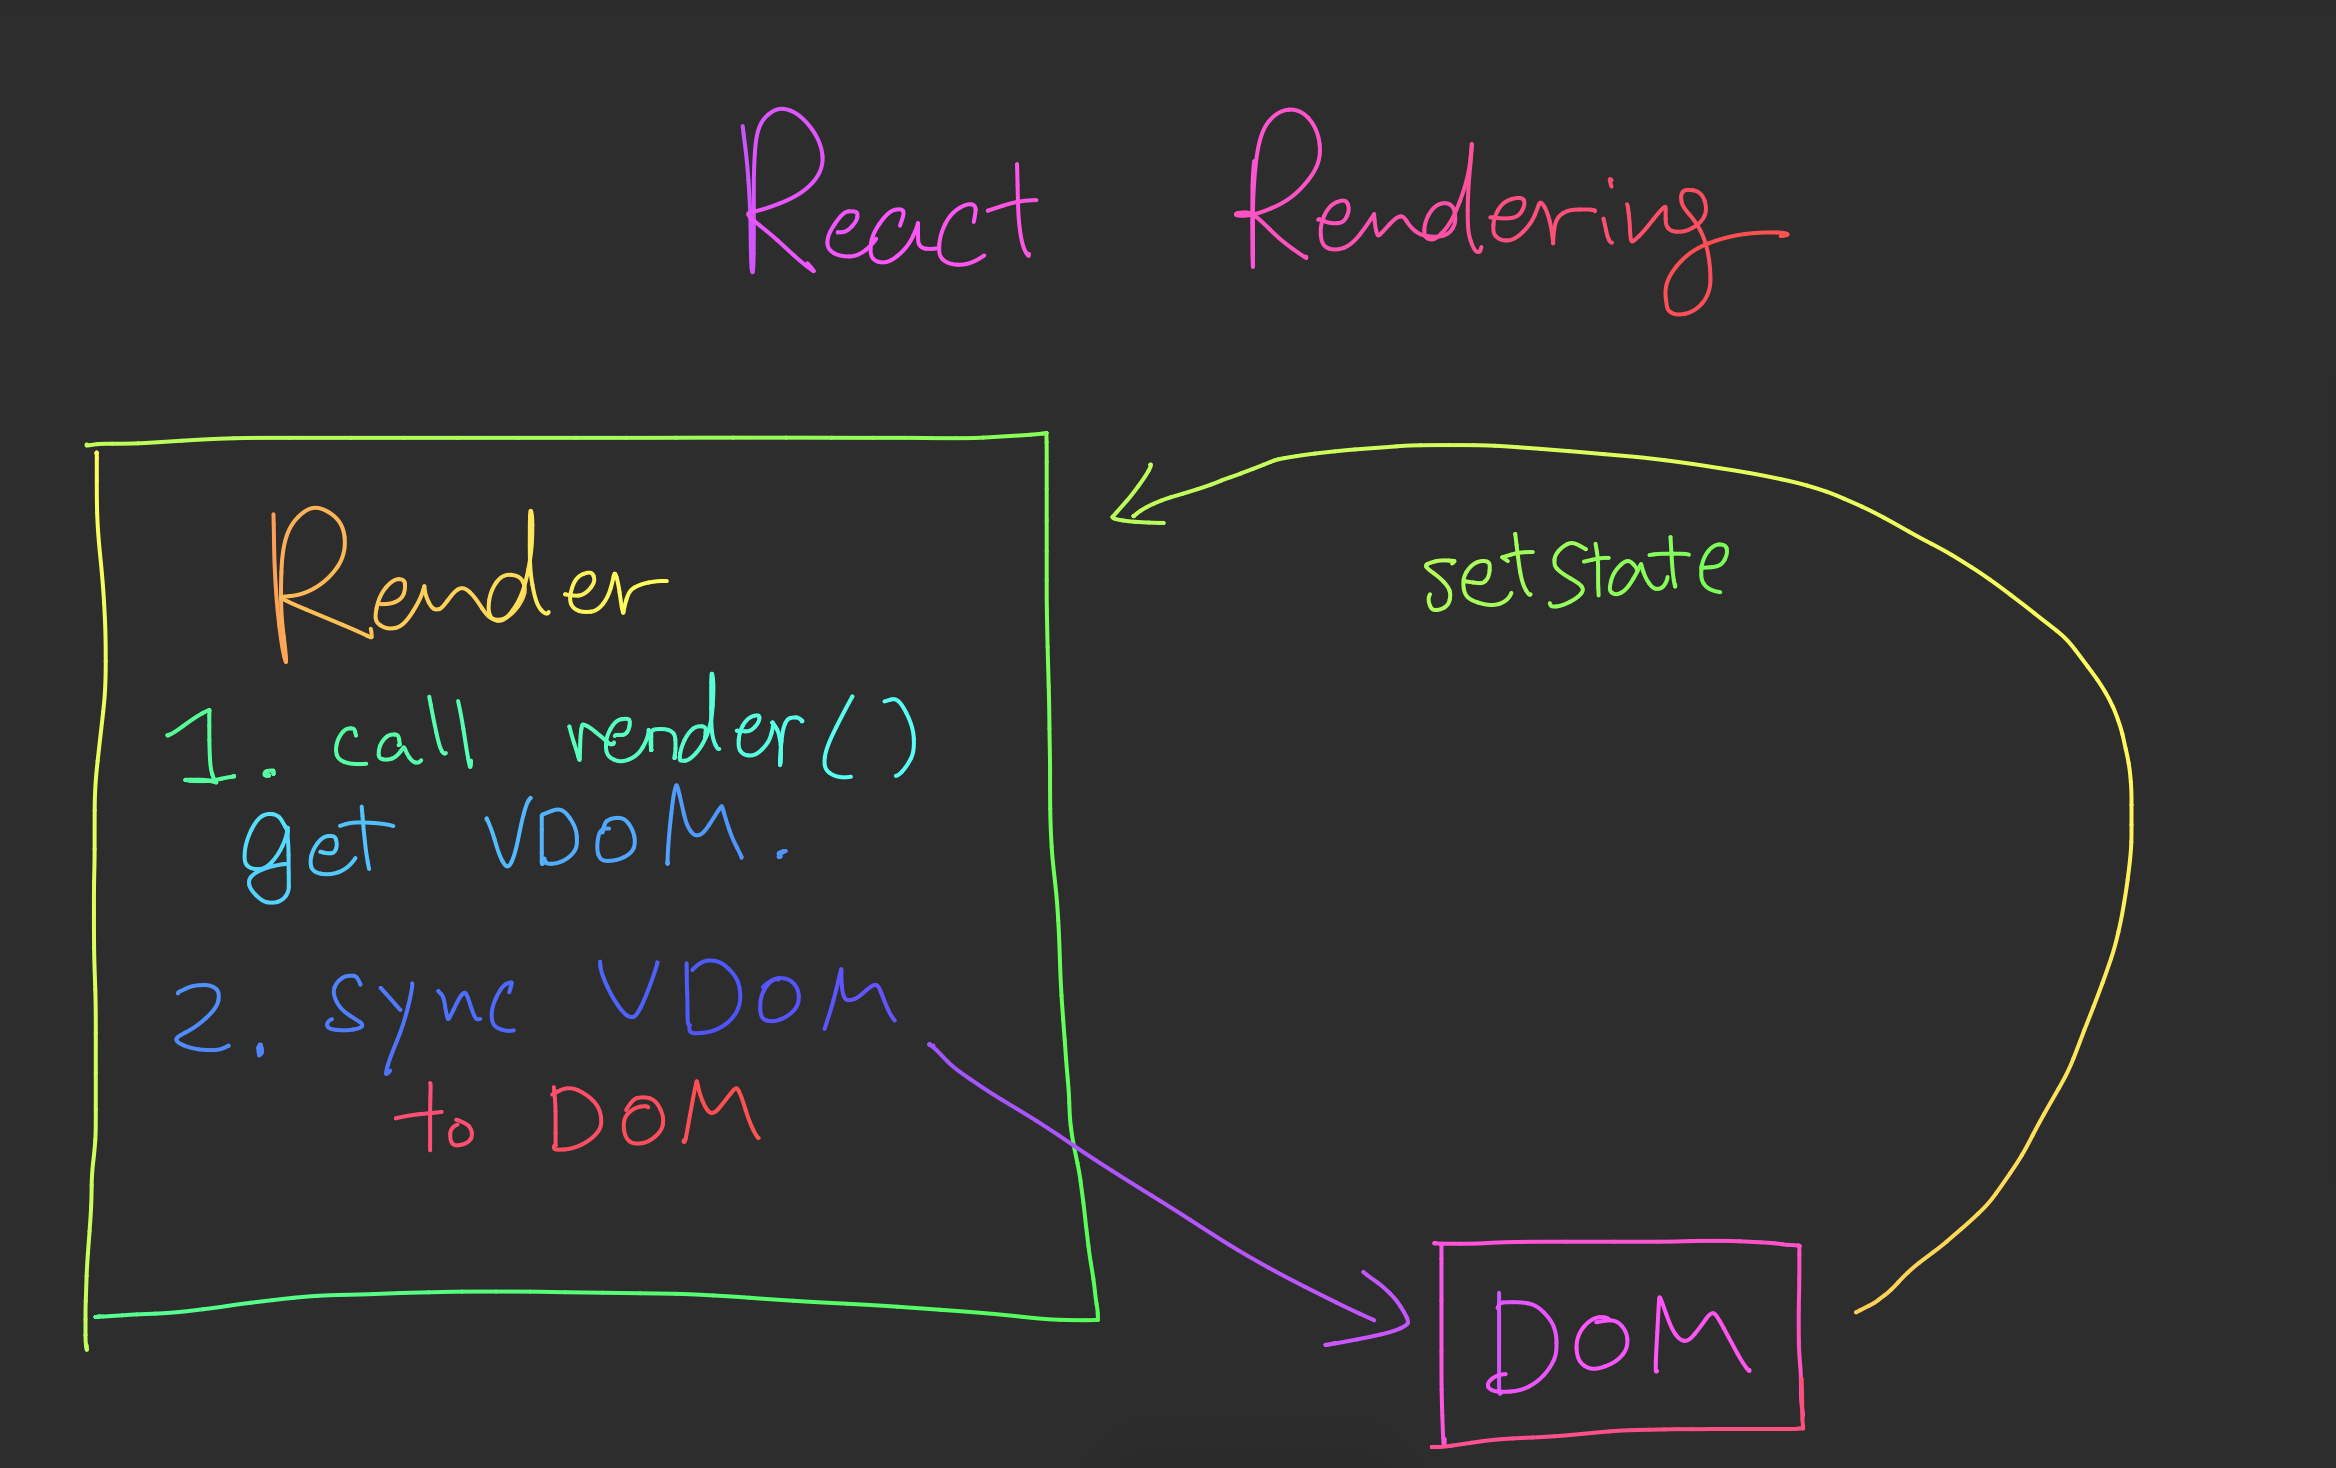 React Rendering
Render
1. call render()
get VDOM.
2. sync VDOM
to DOM
setState
DOM